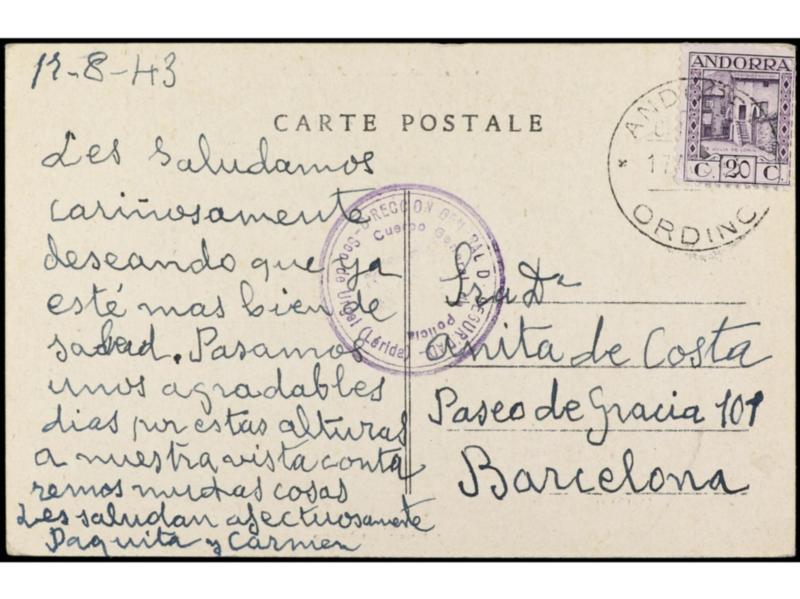 12-8-43
CARTE POSTALE
Les saludamos
cariñosamente
deseando que ya
esté mas bien de
salud. Pasamos
unos agradables
dias por estas alturas
a nuestra vista conta
remos muchas cosas
Les saludan afectuosamente
Paquita y Carmen
ANDORRA
C. 20 C.
ORDINO
DIRECCION GENERAL DE SEGURIDAD
Seo de Urgel (Lérida)
Cuerpo General
Policia
Sra Dª
Anita de Costa
Paseo de Gracia 101
Barcelona